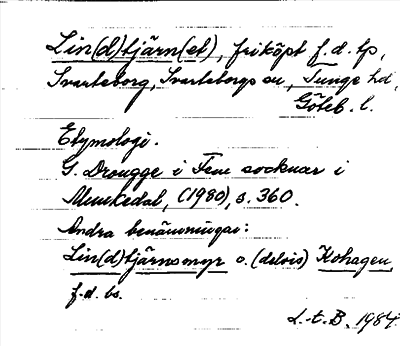 Lin(d)tjärn(et), friköpt f.d. tp,
Svarteborg, Svarteborgs sn, Tunge hd,
Göteb. l.
Etymologi.
G. Drougge i Fem socknar i
Munkedal, (1980), s. 360.
Andra benämningar:
Lin(d)tjärnsmyr o. (delvis) Kohagen,
f.d. bs.
L.-t. B. 1984.